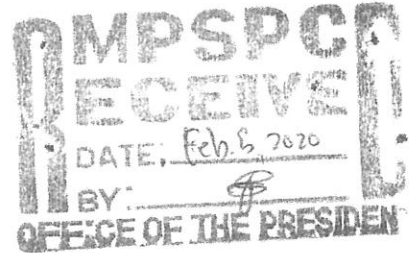 MPSPC
RECEIVE
DATE: Feb. 6, 2020
BY:
OFFICE OF THE PRESIDEN